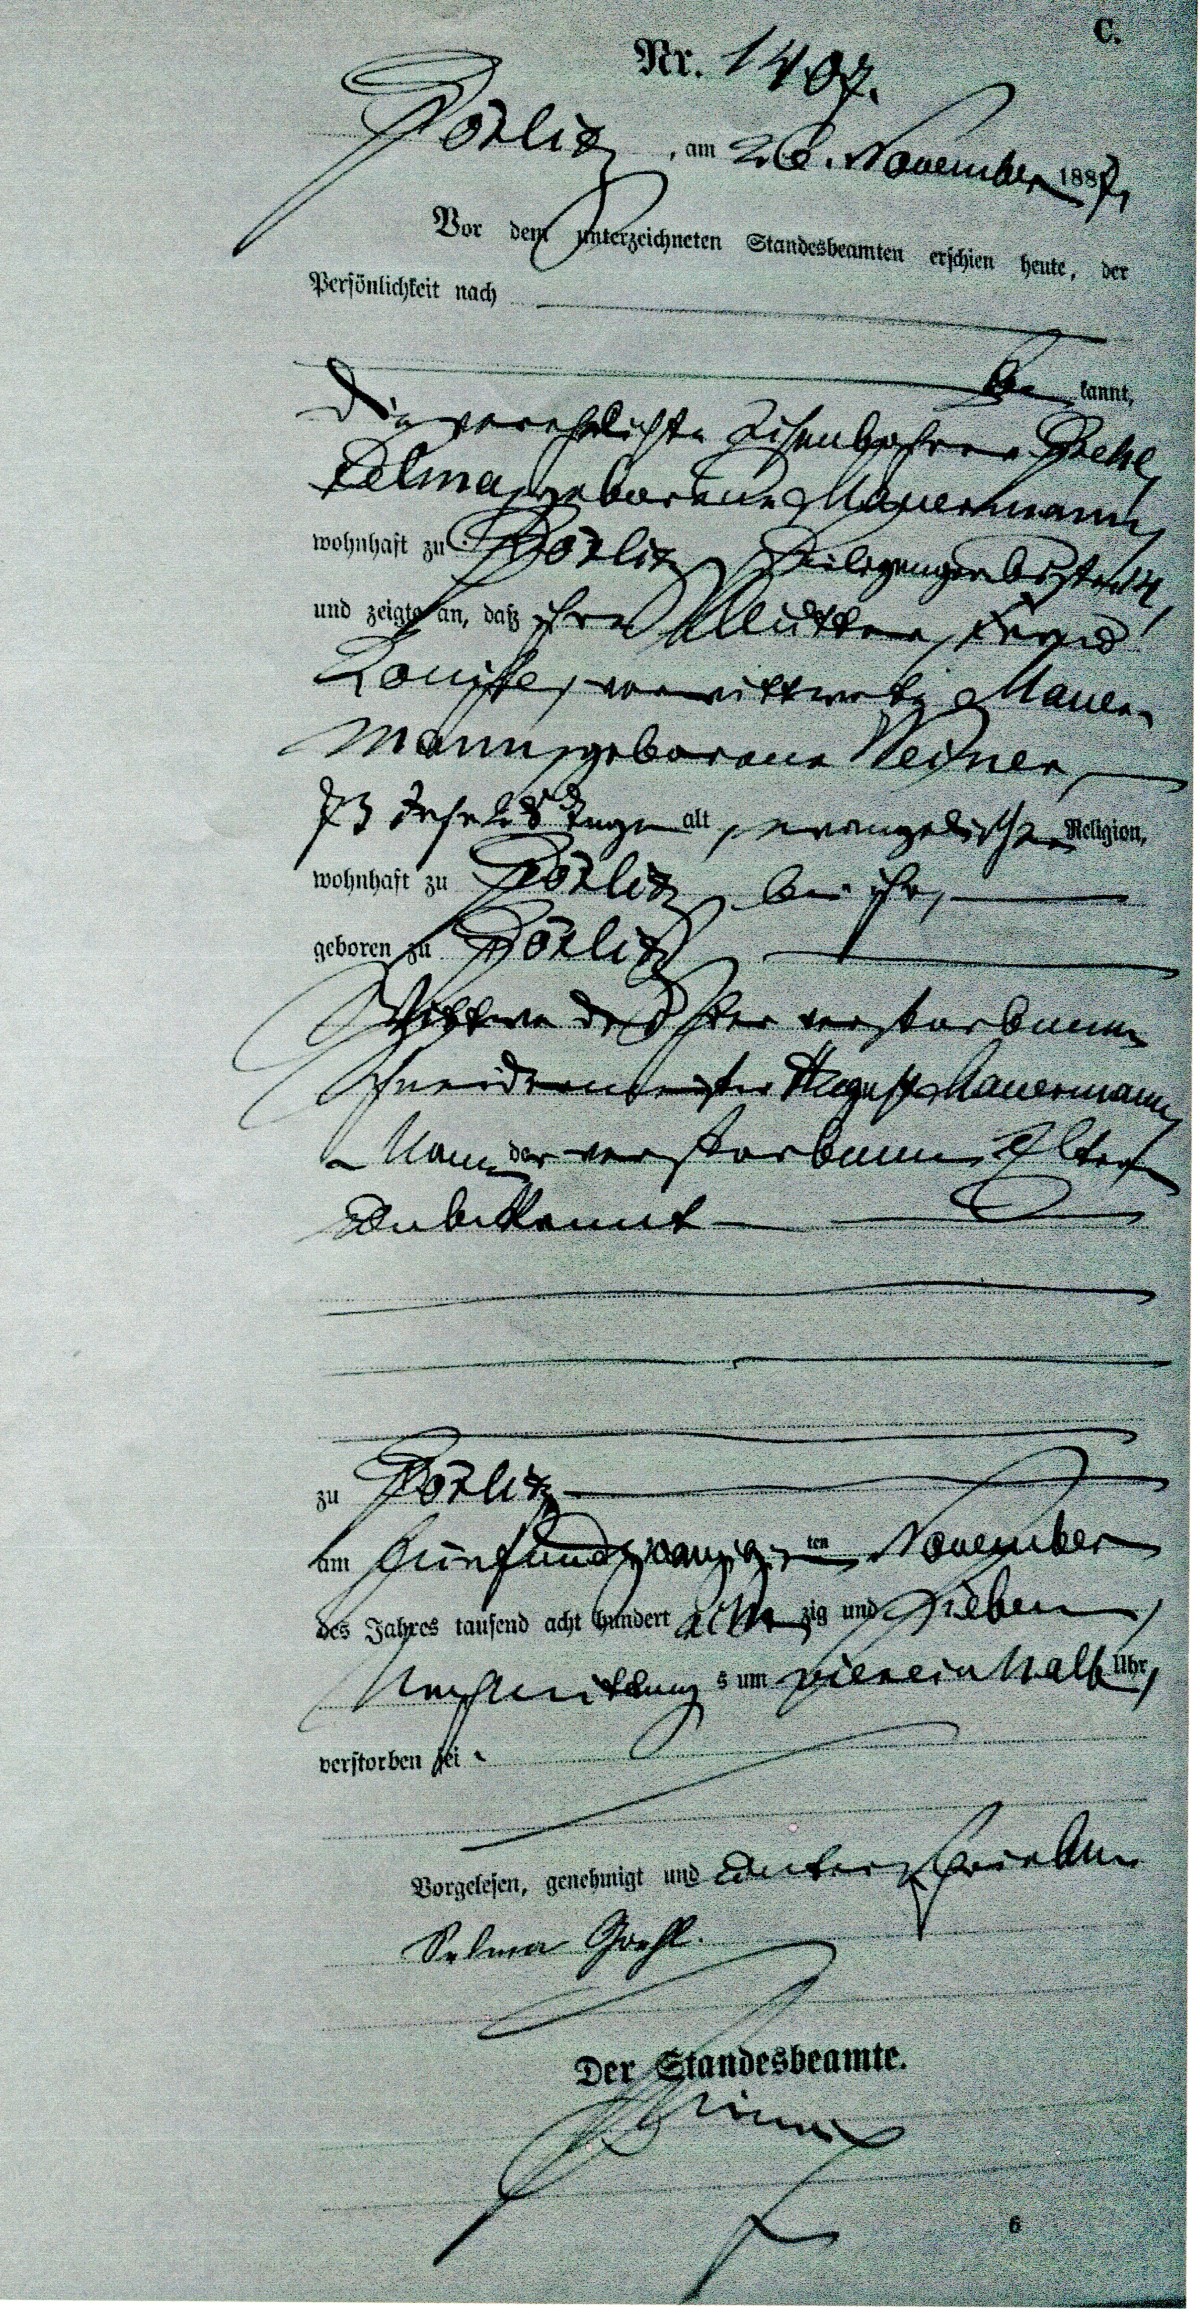 C.
Nr. 1407.
Görlitz, am 26. November 1887,
Vor dem unterzeichneten Standesbeamten erschien heute, der
Persönlichkeit nach
be kannt,
die verehelichte
Selma, geborene Mauermann,
wohnhaft zu Görlitz,
und zeigte an, daß ihre Mutter,
Louise, verwittwete Mauer-
mann, geborene
73 Jahr 28 Tage alt, evangelischer Religion,
wohnhaft zu Görlitz bei ihr,
geboren zu Görlitz
Wittwe des hier verstorbenen
Schneidermeister August Mauermann
Namen der verstorbenen Eltern
unbekannt
zu Görlitz
am fünfundzwanzigsten November
des Jahres tausend acht hundert acht zig und sieben,
Nachmittags um viereinhalb Uhr,
verstorben sei.
Vorgelesen, genehmigt und unterschrieben
Selma
Der Standesbeamte.
6